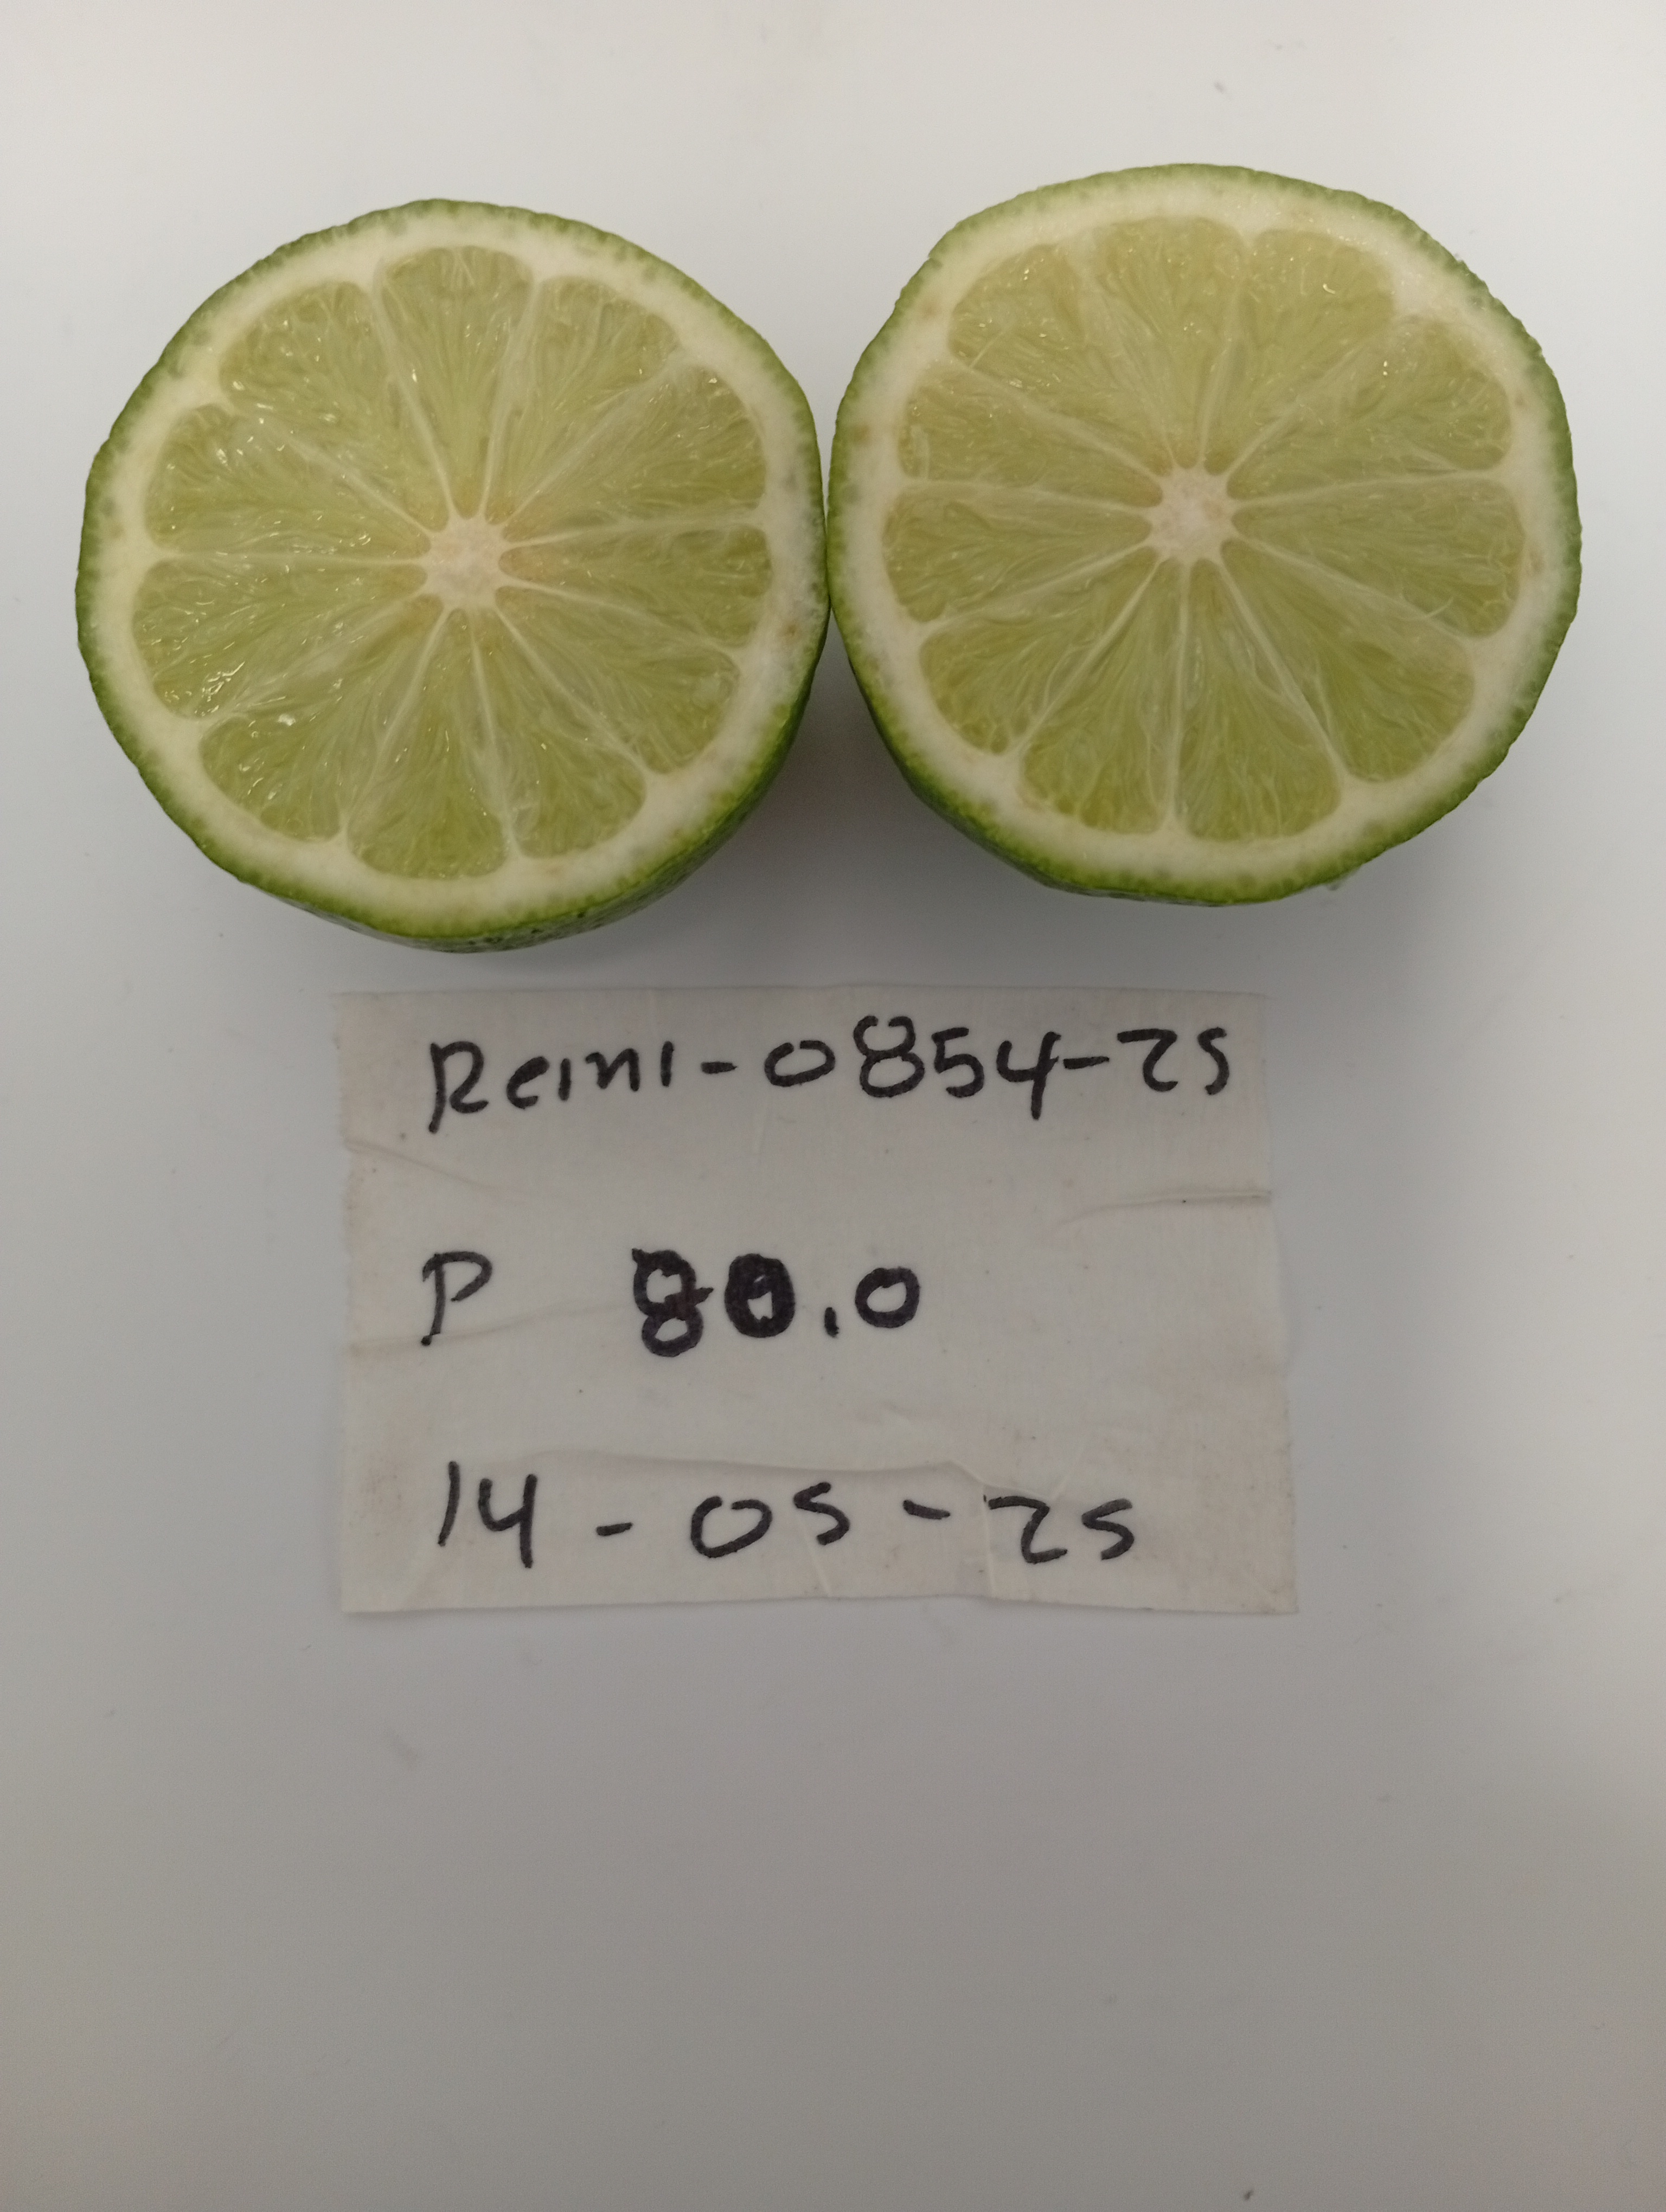 Reini-0854-25
P 80.0
14-05-25